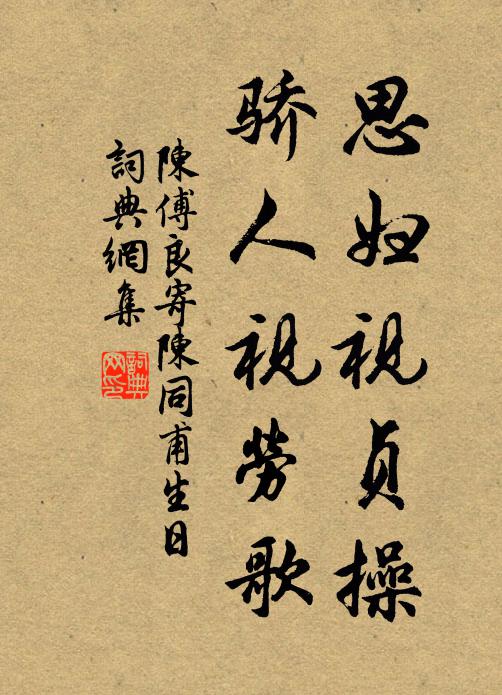 思妇视贞操
骄人视劳歌
陳傅良寄陳同甫生日
詞典網集
詞典
网印